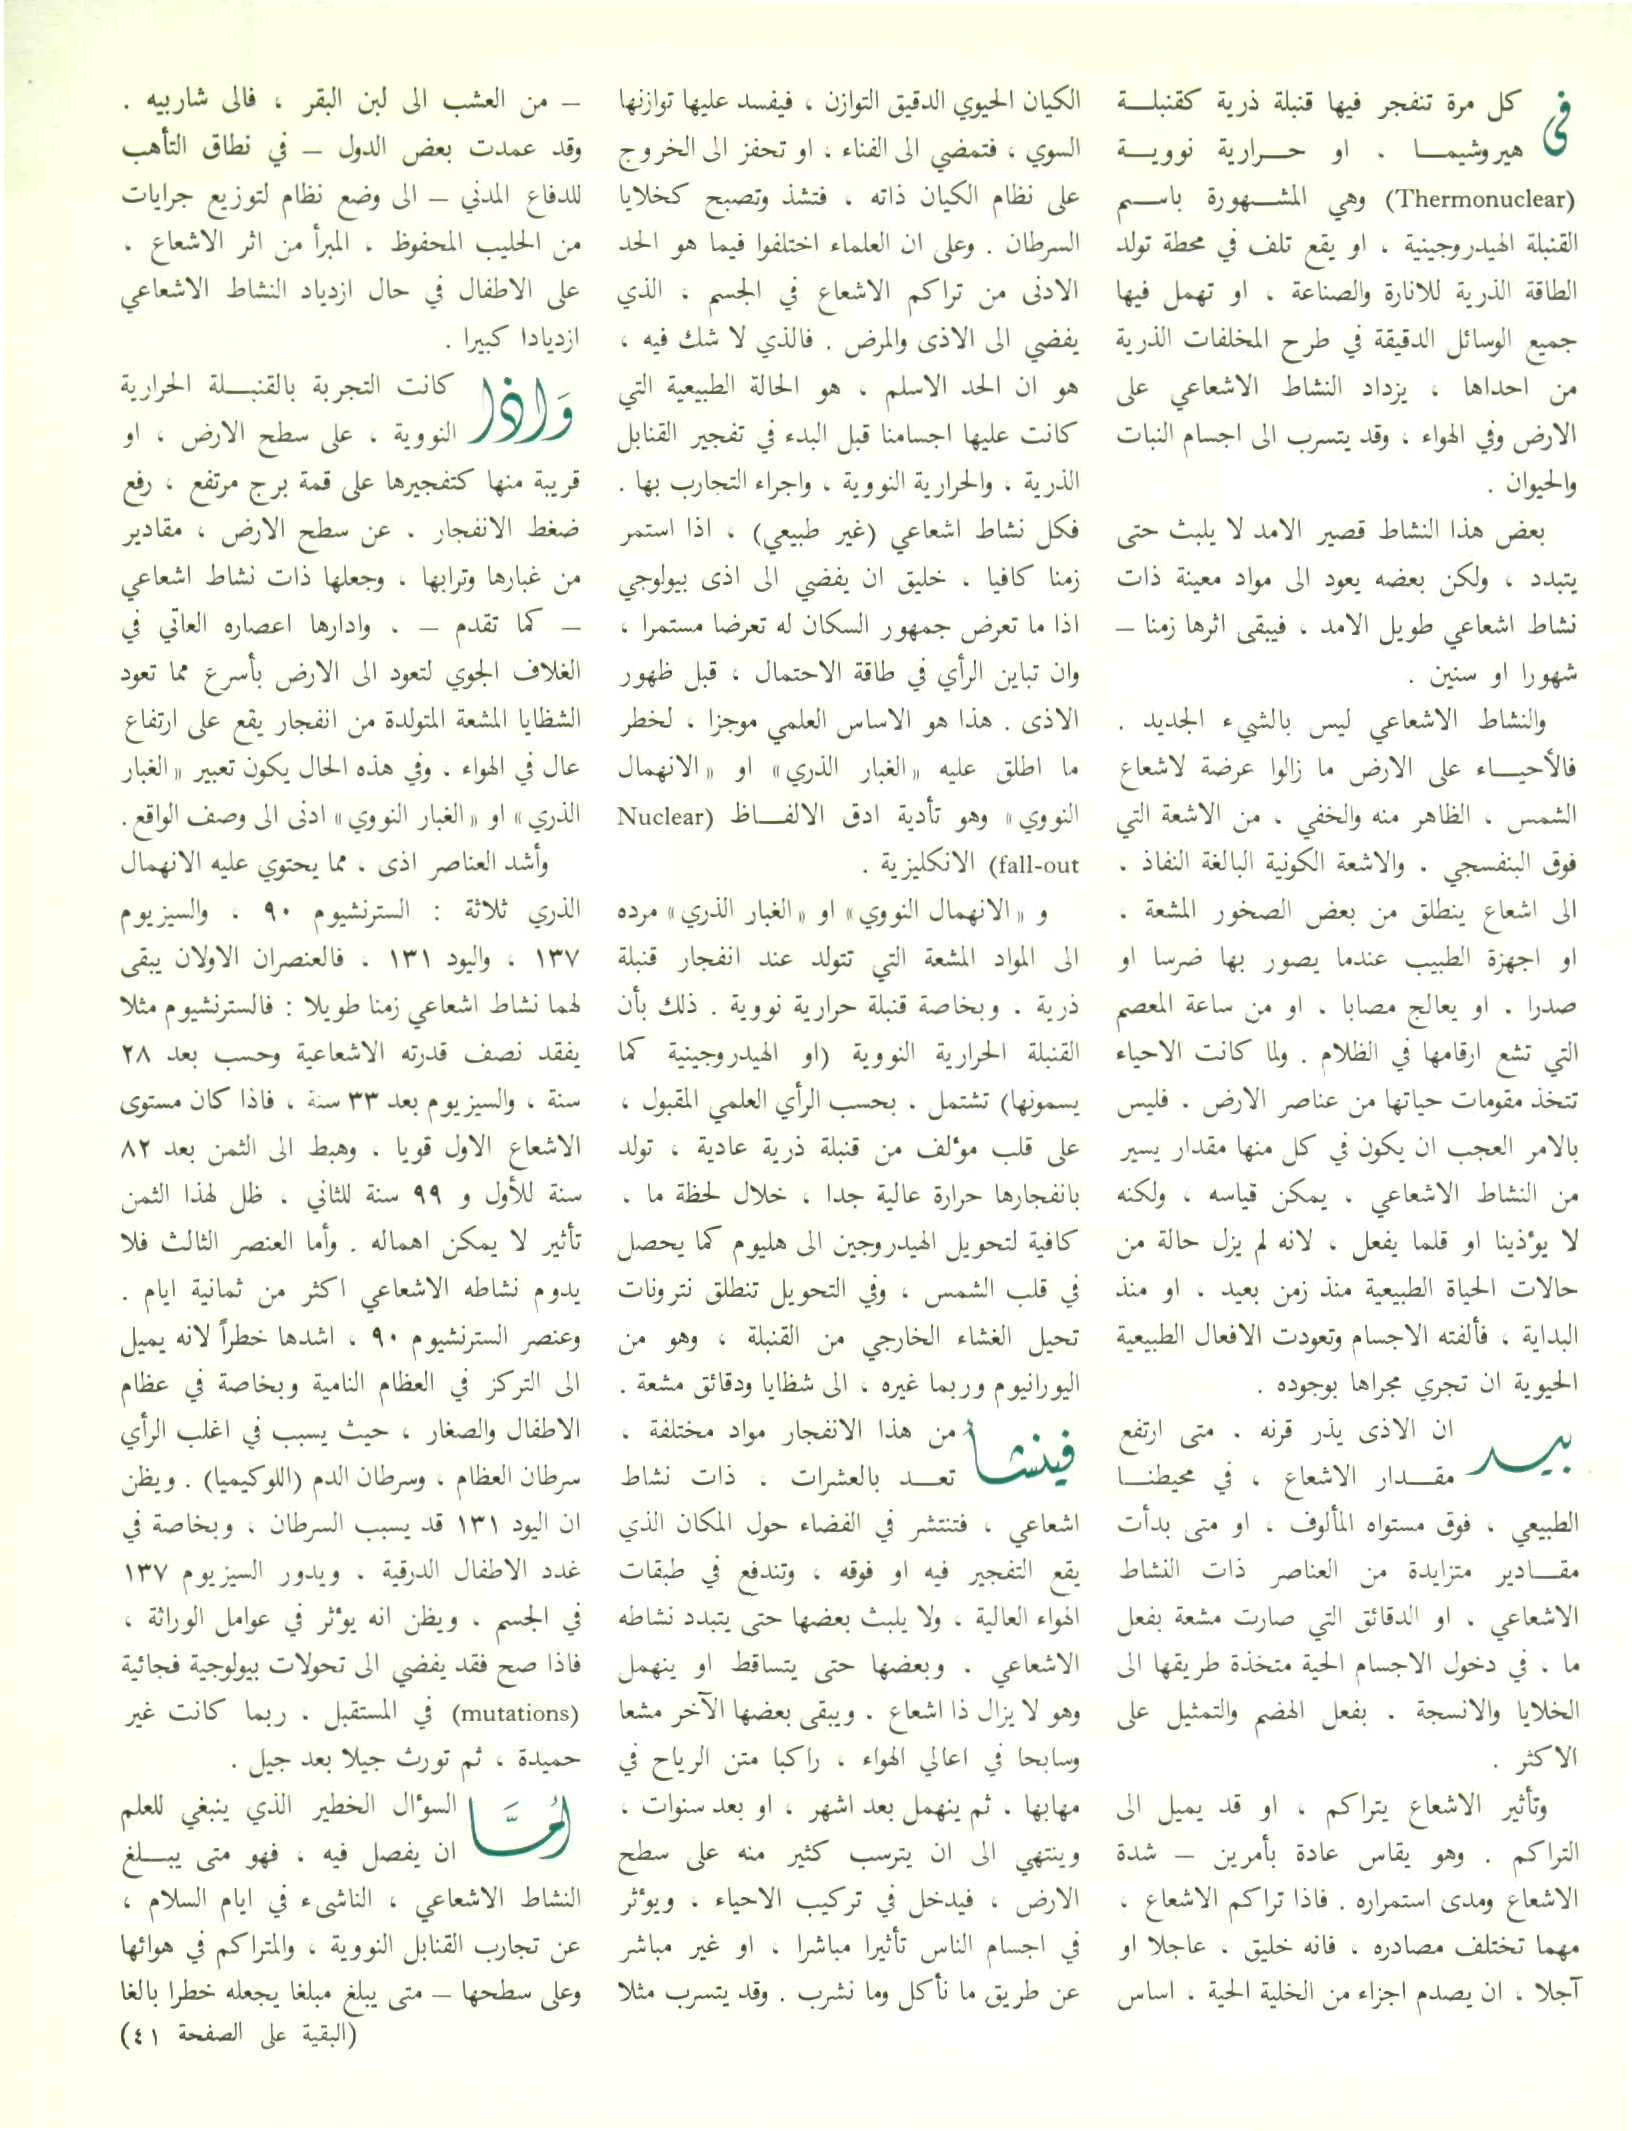 في كل مرة تنفجر فيها قنبلة ذرية كقنبلـــة
هيروشيمـــا ، او حـــرارية نوويـــة
(Thermonuclear) وهي المشـــهورة باســـم
القنبلة الهيدروجينية ، او يقع تلف في محطة تولد
الطاقة الذرية للانارة والصناعة ، او تهمل فيها
جميع الوسائل الدقيقة في طرح المخلفات الذرية
من احداها ، يزداد النشاط الاشعاعي على
الارض وفي الهواء ، وقد يتسرب الى اجسام النبات
والحيوان .
بعض هذا النشاط قصير الامد لا يلبث حتى
يتبدد ، ولكن بعضه يعود الى مواد معينة ذات
نشاط اشعاعي طويل الامد ، فيبقى اثرها زمنا —
شهورا او سنين .
والنشاط الاشعاعي ليس بالشيء الجديد .
فالأحيـــاء على الارض ما زالوا عرضة لاشعاع
الشمس ، الظاهر منه والخفي ، من الاشعة التي
فوق البنفسجي ، والاشعة الكونية البالغة النفاذ ،
الى اشعاع ينطلق من بعض الصخور المشعة ،
او اجهزة الطبيب عندما يصور بها ضرسا او
صدرا ، او يعالج مصابا ، او من ساعة المعصم
التي تشع ارقامها في الظلام . ولما كانت الاحياء
تتخذ مقومات حياتها من عناصر الارض ، فليس
بالامر العجب ان يكون في كل منها مقدار يسير
من النشاط الاشعاعي ، يمكن قياسه ، ولكنه
لا يؤذينا او قلما يفعل ، لانه لم يزل حالة من
حالات الحياة الطبيعية منذ زمن بعيد ، او منذ
البداية ، فألفته الاجسام وتعودت الافعال الطبيعية
الحيوية ان تجري مجراها بوجوده .
بيد ان الاذى يذر قرنه ، متى ارتفع
مقـــدار الاشعاع ، في محيطنـــا
الطبيعي ، فوق مستواه المألوف ، او متى بدأت
مقـــادير متزايدة من العناصر ذات النشاط
الاشعاعي ، او الدقائق التي صارت مشعة بفعل
ما ، في دخول الاجسام الحية متخذة طريقها الى
الخلايا والانسجة ، بفعل الهضم والتمثيل على
الاكثر .
وتأثير الاشعاع يتراكم ، او قد يميل الى
التراكم . وهو يقاس عادة بأمرين — شدة
الاشعاع ومدى استمراره . فاذا تراكم الاشعاع ،
مهما تختلف مصادره ، فانه خليق ، عاجلا او
آجلا ، ان يصدم اجزاء من الخلية الحية ، اساس
الكيان الحيوي الدقيق التوازن ، فيفسد عليها توازنها
السوي ، فتمضي الى الفناء ، او تحفز الى الخروج
على نظام الكيان ذاته ، فتشذ وتصبح كخلايا
السرطان . وعلى ان العلماء اختلفوا فيما هو الحد
الادنى من تراكم الاشعاع في الجسم ، الذي
يفضي الى الاذى والمرض . فالذي لا شك فيه ،
هو ان الحد الاسلم ، هو الحالة الطبيعية التي
كانت عليها اجسامنا قبل البدء في تفجير القنابل
الذرية ، والحرارية النووية ، واجراء التجارب بها .
فكل نشاط اشعاعي (غير طبيعي) ، اذا استمر
زمنا كافيا ، خليق ان يفضي الى اذى بيولوجي
اذا ما تعرض جمهور السكان له تعرضا مستمرا ،
وان تباين الرأي في طاقة الاحتمال ، قبل ظهور
الاذى . هذا هو الاساس العلمي موجزا ، لخطر
ما اطلق عليه «الغبار الذري» او «الانهمال
النووي» وهو تأدية ادق الالفـــاظ (Nuclear
fall-out) الانكليزية .
و «الانهمال النووي» او «الغبار الذري» مرده
الى المواد المشعة التي تتولد عند انفجار قنبلة
ذرية ، وبخاصة قنبلة حرارية نووية . ذلك بأن
القنبلة الحرارية النووية (او الهيدروجينية كما
يسمونها) تشتمل ، بحسب الرأي العلمي المقبول ،
على قلب مؤلف من قنبلة ذرية عادية ، تولد
بانفجارها حرارة عالية جدا ، خلال لحظة ما ،
كافية لتحويل الهيدروجين الى هليوم كما يحصل
في قلب الشمس ، وفي التحويل تنطلق نترونات
تحيل الغشاء الخارجي من القنبلة ، وهو من
اليورانيوم وربما غيره ، الى شظايا ودقائق مشعة .
فينشأ من هذا الانفجار مواد مختلفة ،
تعـــد بالعشرات ، ذات نشاط
اشعاعي ، فتنتشر في الفضاء حول المكان الذي
يقع التفجير فيه او فوقه ، وتندفع في طبقات
الهواء العالية ، ولا يلبث بعضها حتى يتبدد نشاطه
الاشعاعي . وبعضها حتى يتساقط او ينهمل
وهو لا يزال ذا اشعاع . ويبقى بعضها الآخر مشعا
وسابحا في اعالي الهواء ، راكبا متن الرياح في
مهابها ، ثم ينهمل بعد اشهر ، او بعد سنوات ،
وينتهي الى ان يترسب كثير منه على سطح
الارض ، فيدخل في تركيب الاحياء ، ويؤثر
في اجسام الناس تأثيرا مباشرا ، او غير مباشر
عن طريق ما نأكل وما نشرب . وقد يتسرب مثلا
— من العشب الى لبن البقر ، فالى شاربيه .
وقد عمدت بعض الدول — في نطاق التأهب
للدفاع المدني — الى وضع نظام لتوزيع جرايات
من الحليب المحفوظ ، المبرأ من اثر الاشعاع ،
على الاطفال في حال ازدياد النشاط الاشعاعي
ازديادا كبيرا .
وَاذا كانت التجربة بالقنبـــلة الحرارية
النووية ، على سطح الارض ، او
قريبة منها كتفجيرها على قمة برج مرتفع ، رفع
ضغط الانفجار ، عن سطح الارض ، مقادير
من غبارها وترابها ، وجعلها ذات نشاط اشعاعي
— كما تقدم — ، وادارها اعصاره العاتي في
الغلاف الجوي لتعود الى الارض بأسرع مما تعود
الشظايا المشعة المتولدة من انفجار يقع على ارتفاع
عال في الهواء . وفي هذه الحال يكون تعبير «الغبار
الذري» او «الغبار النووي» ادنى الى وصف الواقع .
وأشد العناصر اذى ، مما يحتوي عليه الانهمال
الذري ثلاثة : السترنشيوم ٩٠ ، والسيزيوم
١٣٧ ، واليود ١٣١ ، فالعنصران الاولان يبقى
لهما نشاط اشعاعي زمنا طويلا : فالسترنشيوم مثلا
يفقد نصف قدرته الاشعاعية وحسب بعد ٢٨
سنة ، والسيزيوم بعد ٣٣ سنة ، فاذا كان مستوى
الاشعاع الاول قويا ، وهبط الى الثمن بعد ٨٢
سنة للأول و ٩٩ سنة للثاني ، ظل لهذا الثمن
تأثير لا يمكن اهماله . وأما العنصر الثالث فلا
يدوم نشاطه الاشعاعي اكثر من ثمانية ايام .
وعنصر السترنشيوم ٩٠ ، اشدها خطراً لانه يميل
الى التركز في العظام النامية وبخاصة في عظام
الاطفال والصغار ، حيث يسبب في اغلب الرأي
سرطان العظام ، وسرطان الدم (اللوكيميا) . ويظن
ان اليود ١٣١ قد يسبب السرطان ، وبخاصة في
غدد الاطفال الدرقية ، ويدور السيزيوم ١٣٧
في الجسم ، ويظن انه يؤثر في عوامل الوراثة ،
فاذا صح فقد يفضي الى تحولات بيولوجية فجائية
(mutations) في المستقبل ، ربما كانت غير
حميدة ، ثم تورث جيلا بعد جيل .
أمَّا السؤال الخطير الذي ينبغي للعلم
ان يفصل فيه ، فهو متى يبـــلغ
النشاط الاشعاعي ، الناشىء في ايام السلام ،
عن تجارب القنابل النووية ، والمتراكم في هوائها
وعلى سطحها — متى يبلغ مبلغا يجعله خطرا بالغا
(البقية على الصفحة ٤١)